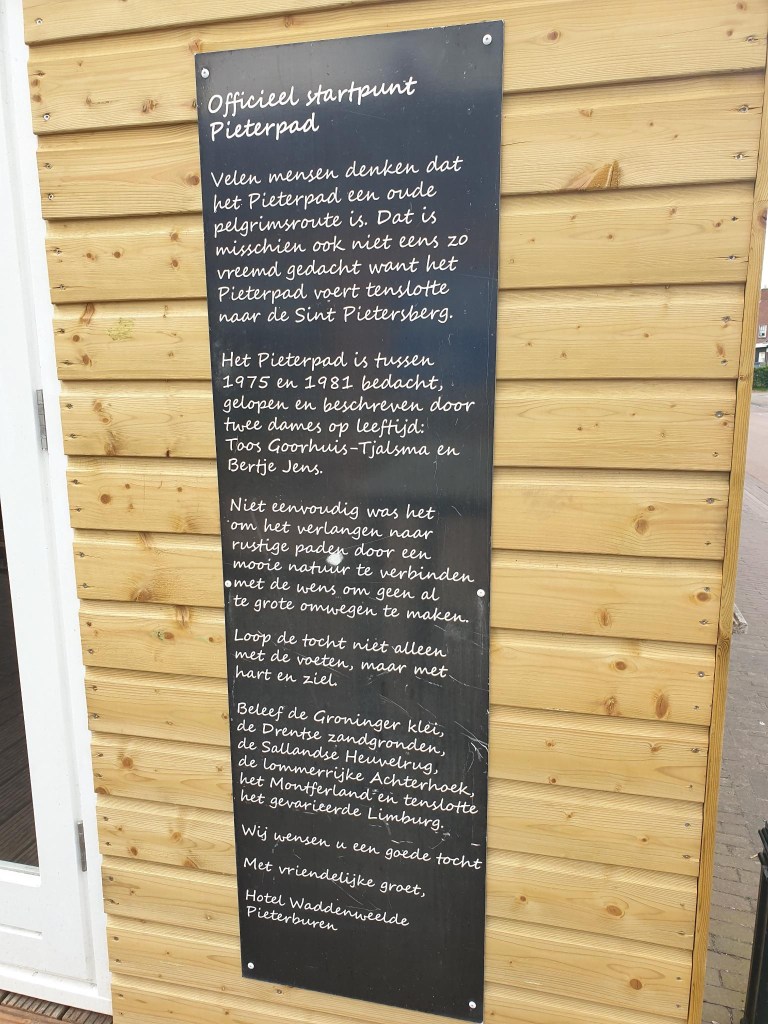 Officieel startpunt
Pieterpad
Velen mensen denken dat
het Pieterpad een oude
pelgrimsroute is. Dat is
misschien ook niet eens zo
vreemd gedacht want het
Pieterpad voert tenslotte
naar de Sint Pietersberg.
Het Pieterpad is tussen
1975 en 1981 bedacht,
gelopen en beschreven door
twee dames op leeftijd:
Toos Goorhuis-Tjalsma en
Bertje Jens.
Niet eenvoudig was het
om het verlangen naar
rustige paden door een
mooie natuur te verbinden
met de wens om geen al
te grote omwegen te maken.
Loop de tocht niet alleen
met de voeten, maar met
hart en ziel.
Beleef de Groninger klei,
de Drentse zandgronden,
de Sallandse Heuvelrug,
de lommerrijke Achterhoek,
het Montferland en tenslotte
het gevarieerde Limburg.
Wij wensen u een goede tocht
Met vriendelijke groet,
Hotel Waddenweelde
Pieterburen